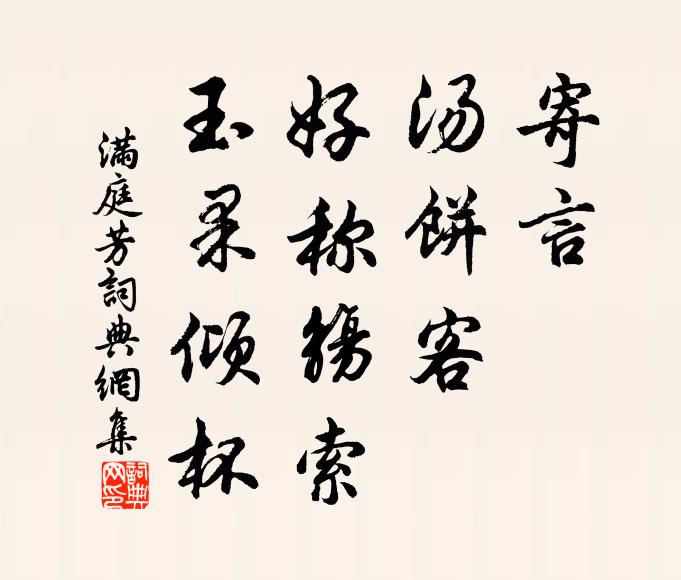 寄言
汤餅客
好称觞索
玉果倾杯
满庭芳詞典網集
詞典
网印